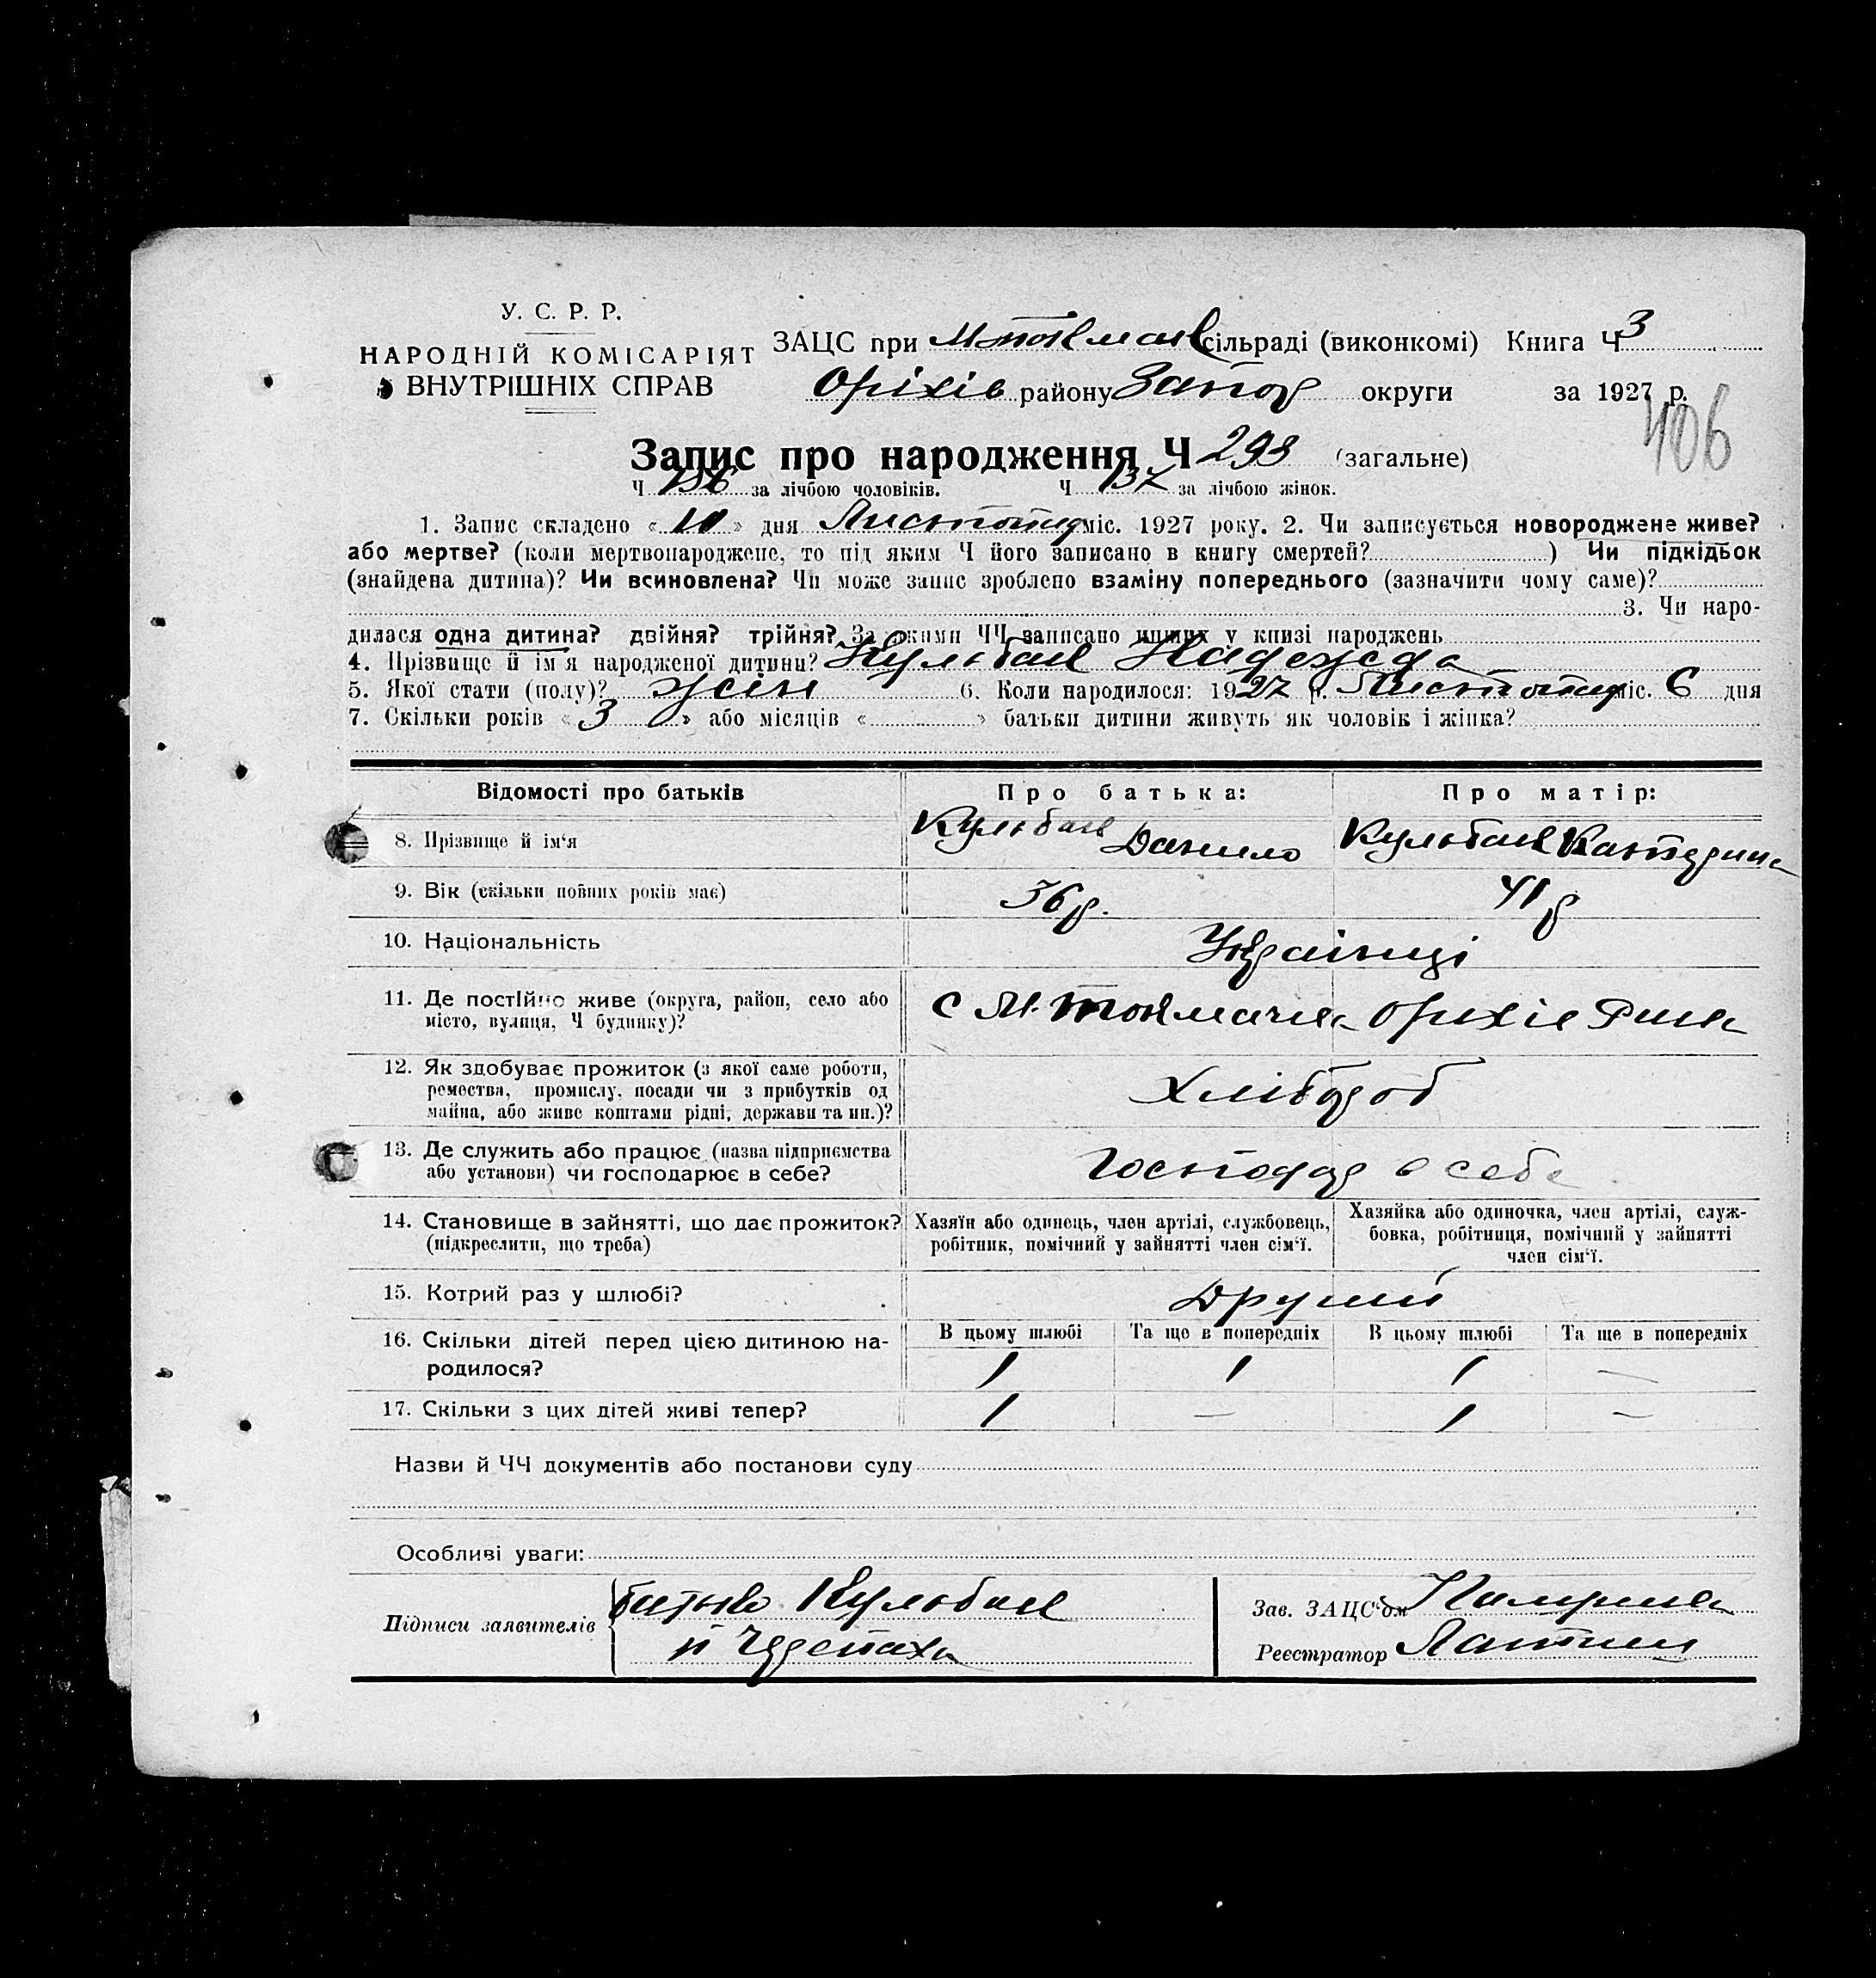 У. С. Р. Р.
НАРОДНІЙ КОМІСАРІЯТ
ВНУТРІШНІХ СПРАВ
ЗАЦС при М Токмач сільраді (виконкомі) Книга Ч 3
Оріхів району Запор округи за 1927 р.
406
Запис про народження Ч 293 (загальне)
Ч 156 за лічбою чоловіків. Ч 137 за лічбою жінок.
1. Запис складено « 10 » дня Листопад міс. 1927 року. 2. Чи записується новороджене живе?
або мертве? (коли мертвонароджене, то під яким Ч його записано в книгу смертей? ) Чи підкідьок
(знайдена дитина)? Чи всиновлена? Чи може запис зроблено взаміну попереднього (зазначити чому саме)?
3. Чи наро-
дилася одна дитина? двійня? трійня? За якими ЧЧ записано инших у книзі народжень
4. Прізвище й ім'я народженої дитини? Кульбак Надежда
5. Якої стати (полу)? жін 6. Коли народилося: 1927 р. Листопад міс. 6 дня
7. Скільки років « 3 » або місяців « » батьки дитини живуть як чоловік і жінка?
Відомості про батьків Про батька: Про матір:
8. Прізвище й ім‘я Кульбак Данило Кульбак Катерина
9. Вік (скільки повних років має) 36 р. 41 р
10. Національність Українці
11. Де постійно живе (округа, район, село або
місто, вулиця, Ч будинку)? с М. Токмачка Оріхів
12. Як здобуває прожиток (з якої саме роботи,
ремества, промислу, посади чи з прибутків од
майна, або живе коштами рідні, держави та ин.)? Хлібороб
13. Де служить або працює (назва підприємства
або установи) чи господарює в себе? Господар в себе
14. Становище в зайнятті, що дає прожиток?
(підкреслити, що треба)
Хазяїн або одинець, член артілі, службовець,
робітник, помічний у зайнятті член сім‘ї.
Хазяйка або одиночка, член артілі, служ-
бовка, робітниця, помічний у зайнятті
член сім‘ї.
15. Котрий раз у шлюбі? Другий
16. Скільки дітей перед цією дитиною на-
родилося?
В цьому шлюбі Та ще в попередніх В цьому шлюбі Та ще в попередніх
1 1 1 —
17. Скільки з цих дітей живі тепер? 1 — 1 —
Назви й ЧЧ документів або постанови суду
Особливі уваги:
Підписи заявителів батько Кульбак
Зав. ЗАЦС‘ом
Реєстратор